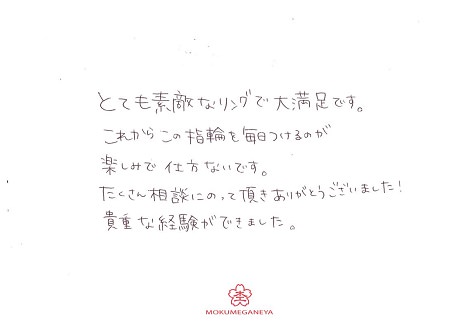 とても素敵なリングで大満足です。
これからこの指輪を毎日つけるのが
楽しみで仕方ないです。
たくさん相談にのって頂きありがとうございました!
貴重な経験ができました。
MOKUMEGANEYA